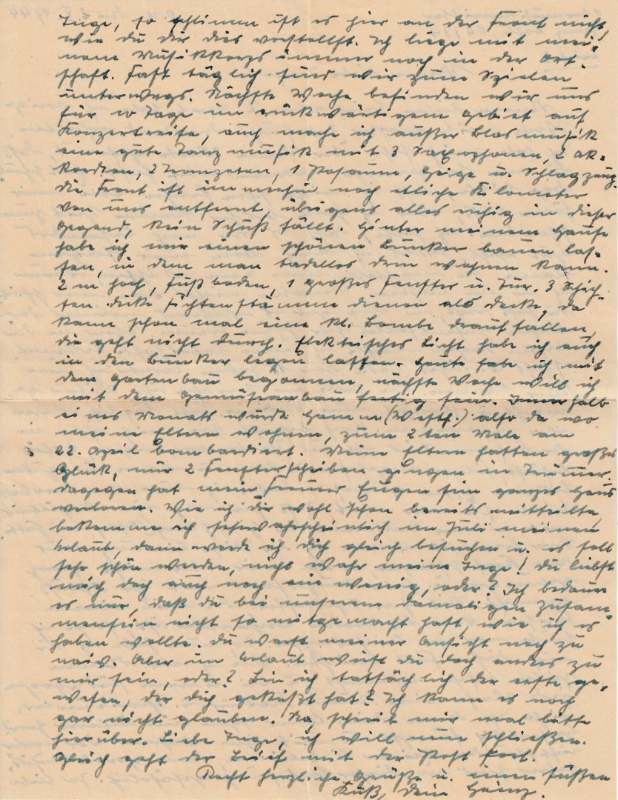 Inge, so schlimm ist es hier an der Front nicht
wie du dir dies vorstellst. Ich liege mit mei-
nem Musikkorps immer noch in der Ort-
schaft. Fast täglich sind wir zum Spielen
unterwegs. Nächste Woche befinden wir uns
für 10 Tage im rückwärtigem Gebiet auf
Konzertreise, auch mache ich außer Blasmusik
eine gute Tanzmusik mit 3 Saxophonen, 2 Ak-
kordien, 2 Trompeten, 1 Posaune, Geige u. Schlagzeug.
Die Front ist immerhin noch etliche Kilometer
von uns entfernt, übrigens alles ruhig in dieser
Gegend, kein Schuß fällt. Hinter meinem Hause
habe ich mir einen schönen Bunker bauen las-
sen, in dem man tadellos drin wohnen kann.
2 m hoch, Fußboden, 1 großes Fenster u. Tür. 3 Schich-
ten dicke Fichtenstämme dienen als Decke, da
kann schon mal eine kl. Bombe drauf fallen,
die geht nicht durch. Elektrisches Licht habe ich auch
in den Bunker legen lassen. Heute habe ich mit
dem Gartenbau begonnen, nächste Woche will ich
mit dem Gemüseanbau fertig sein. Innerhalb
eines Monats wurde Hamm (Westf.) also da wo
meine Eltern wohnen, zum 2ten Male am
22. April bombardiert. Meine Eltern hatten großes
Glück, nur 2 Fensterscheiben gingen in Trümmer.
Dagegen hat mein Freund Eugen sein ganzes Haus
verloren. Wie ich dir wohl schon bereits mitteilte
bekomme ich sehrwahrscheinlich im Juli meinen
Urlaub, dann werde ich dich gleich besuchen u. es soll
sehr schön werden, nicht wahr meine Inge! Du liebst
mich doch auch noch ein wenig, oder? Ich bedaure
es nur, daß du bei unserem damaligen Zusam-
mensein nicht so mitgemacht hast, wie ich es
haben wollte. Du warst meiner Ansicht noch zu
naiv. Aber im Urlaub wirst du doch anders zu
mir sein, oder? Bin ich tatsächlich der erste ge-
wesen, der dich geküßt hat? Ich kann es noch
gar nicht glauben. Na, schreib mir mal bitte
hierüber. Liebe Inge, ich will nun schließen.
Gleich geht der Brief mit der Post fort.
Recht herzliche Grüße u. einen süßen
Kuß, dein Heinz.